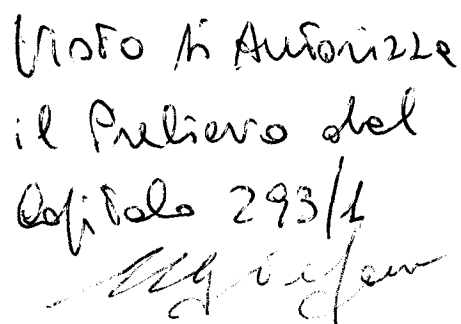 Visto si Autorizza
il Prelievo dal
Capitolo 293/1